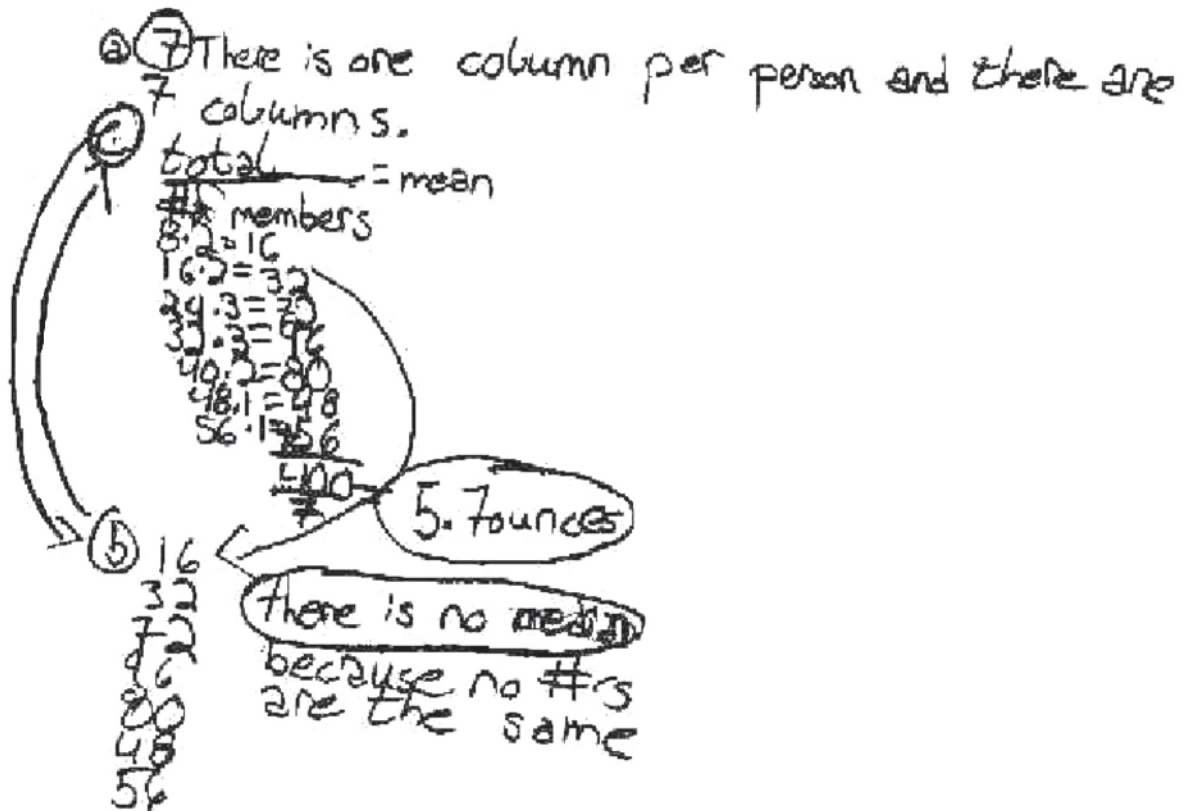 a 7 There is one column per person and there are
7 columns.
c total = mean
# members
8·2=16
16·2=32
24·3=72
32·3=96
40·2=80
48·1=48
56·1=56
400
7
5.7ounces
b 16
32
72
96
80
48
56
there is no median
because no #rs
are the same